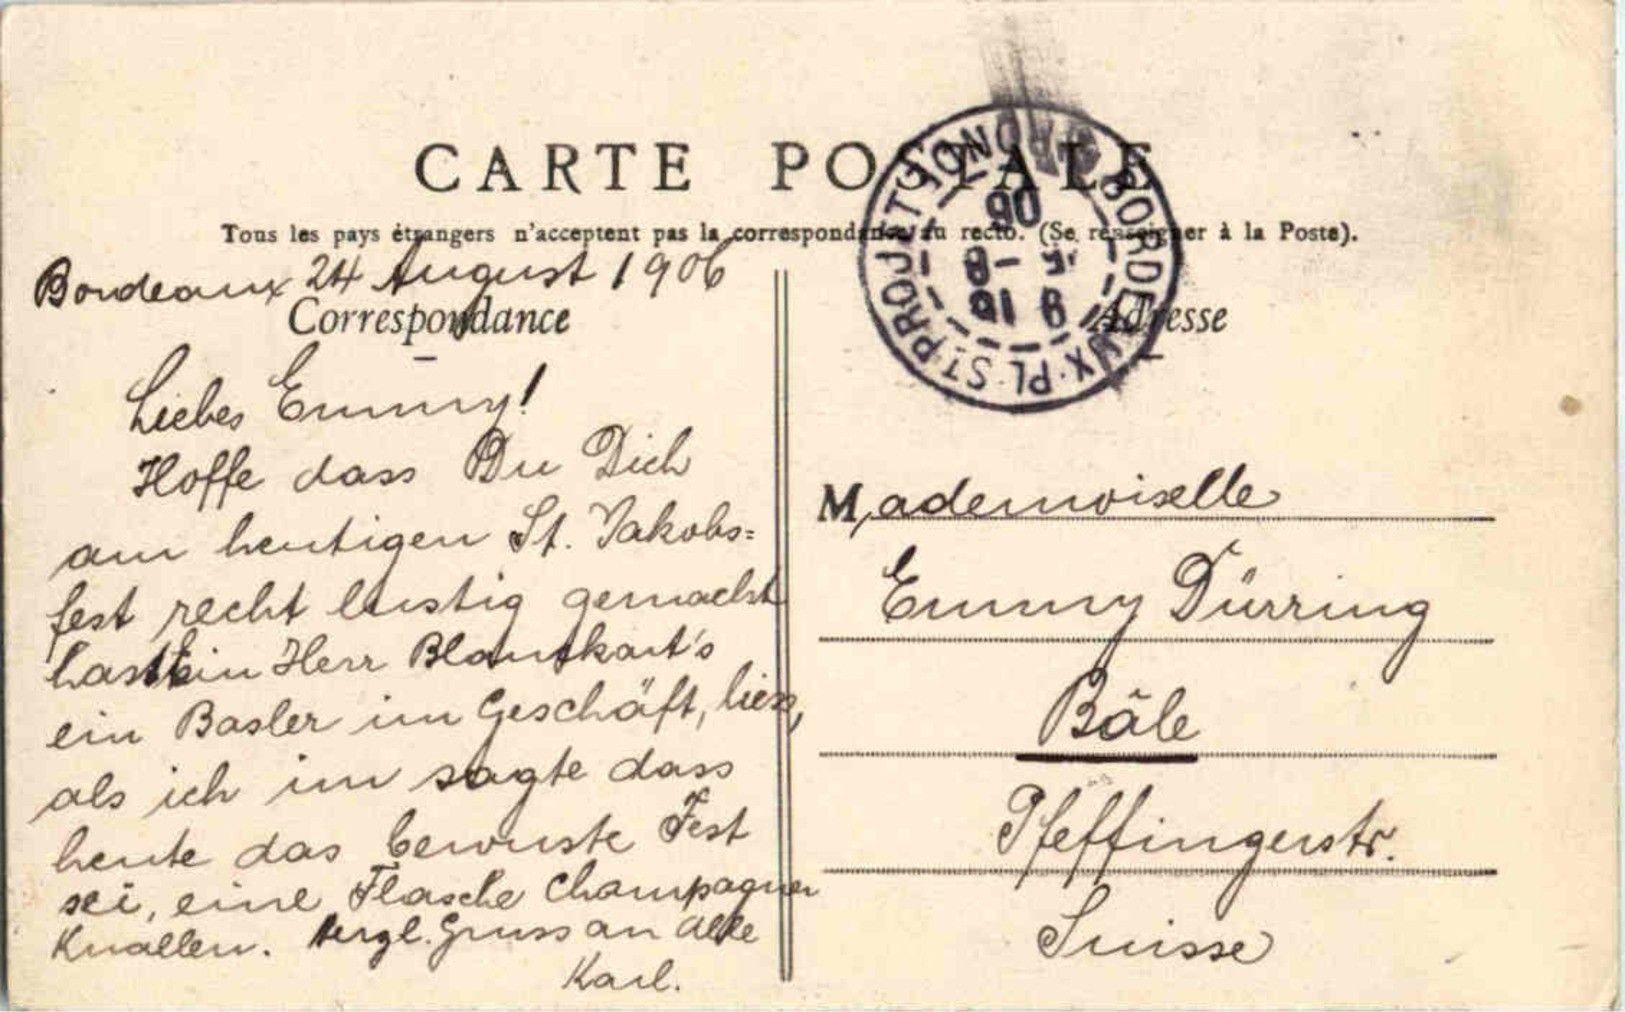 CARTE POSTALE
Tous les pays étrangers n'acceptent pas la correspondance au recto. (Se renseigner à la Poste).
Bordeaux 24 August 1906
Correspondance
Liebes Emmy!
Hoffe dass Du Dich
am heutigen St. Jakobs=
fest recht lustig gemacht
hast. Herr Blankart's
ein Basler im Geschäft, liess,
als ich im sagte dass
heute das bewuste Fest
sei, eine Flasche Champagner
Knallen. Herzl. Gruss an Alle
Karl.
BORDEAUX·PL·ST·PROJET
GIRONDE
06
Adresse
Mademoiselle
Emmy Dürring
Bâle
Pfeffingerstr.
Suisse